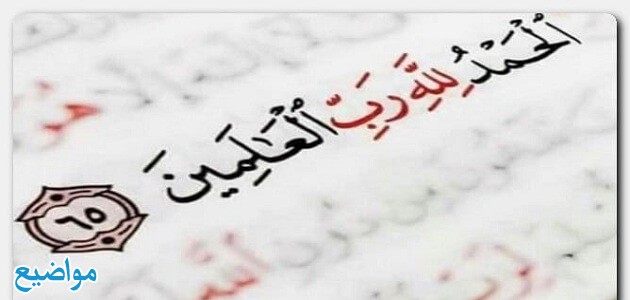 ٱلْحَمْدُ لِلَّهِ رَبِّ ٱلْعَٰلَمِينَ ٦٥
مواضيع